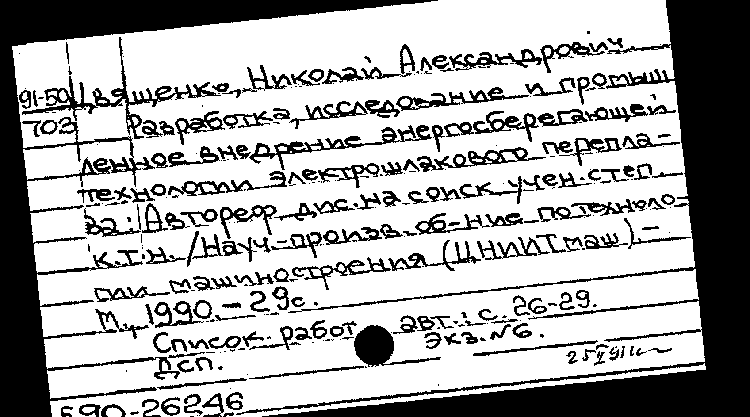 91-50 Цвященко, Николай Александрович
703 Разработка, исследование и промыш
ленное внедрение энергосберегающей
технологии электрошлакового перепла-
ва: Автореф. дис. на соиск. учен. степ.
к.т.н. /Науч.-произв. об-ние по техноло-
гии машиностроения (ЦНИИТмаш).-
М., 1990.- 29с.
Список работ авт.: с. 26-29.
ДСП. Экз. №6.
590-26246